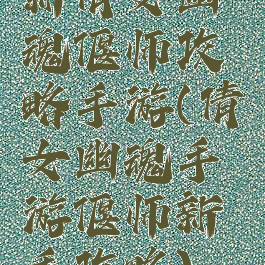 新倩女幽
魂偃师攻
略手游(倩
女幽魂手
游偃师新
手攻略)